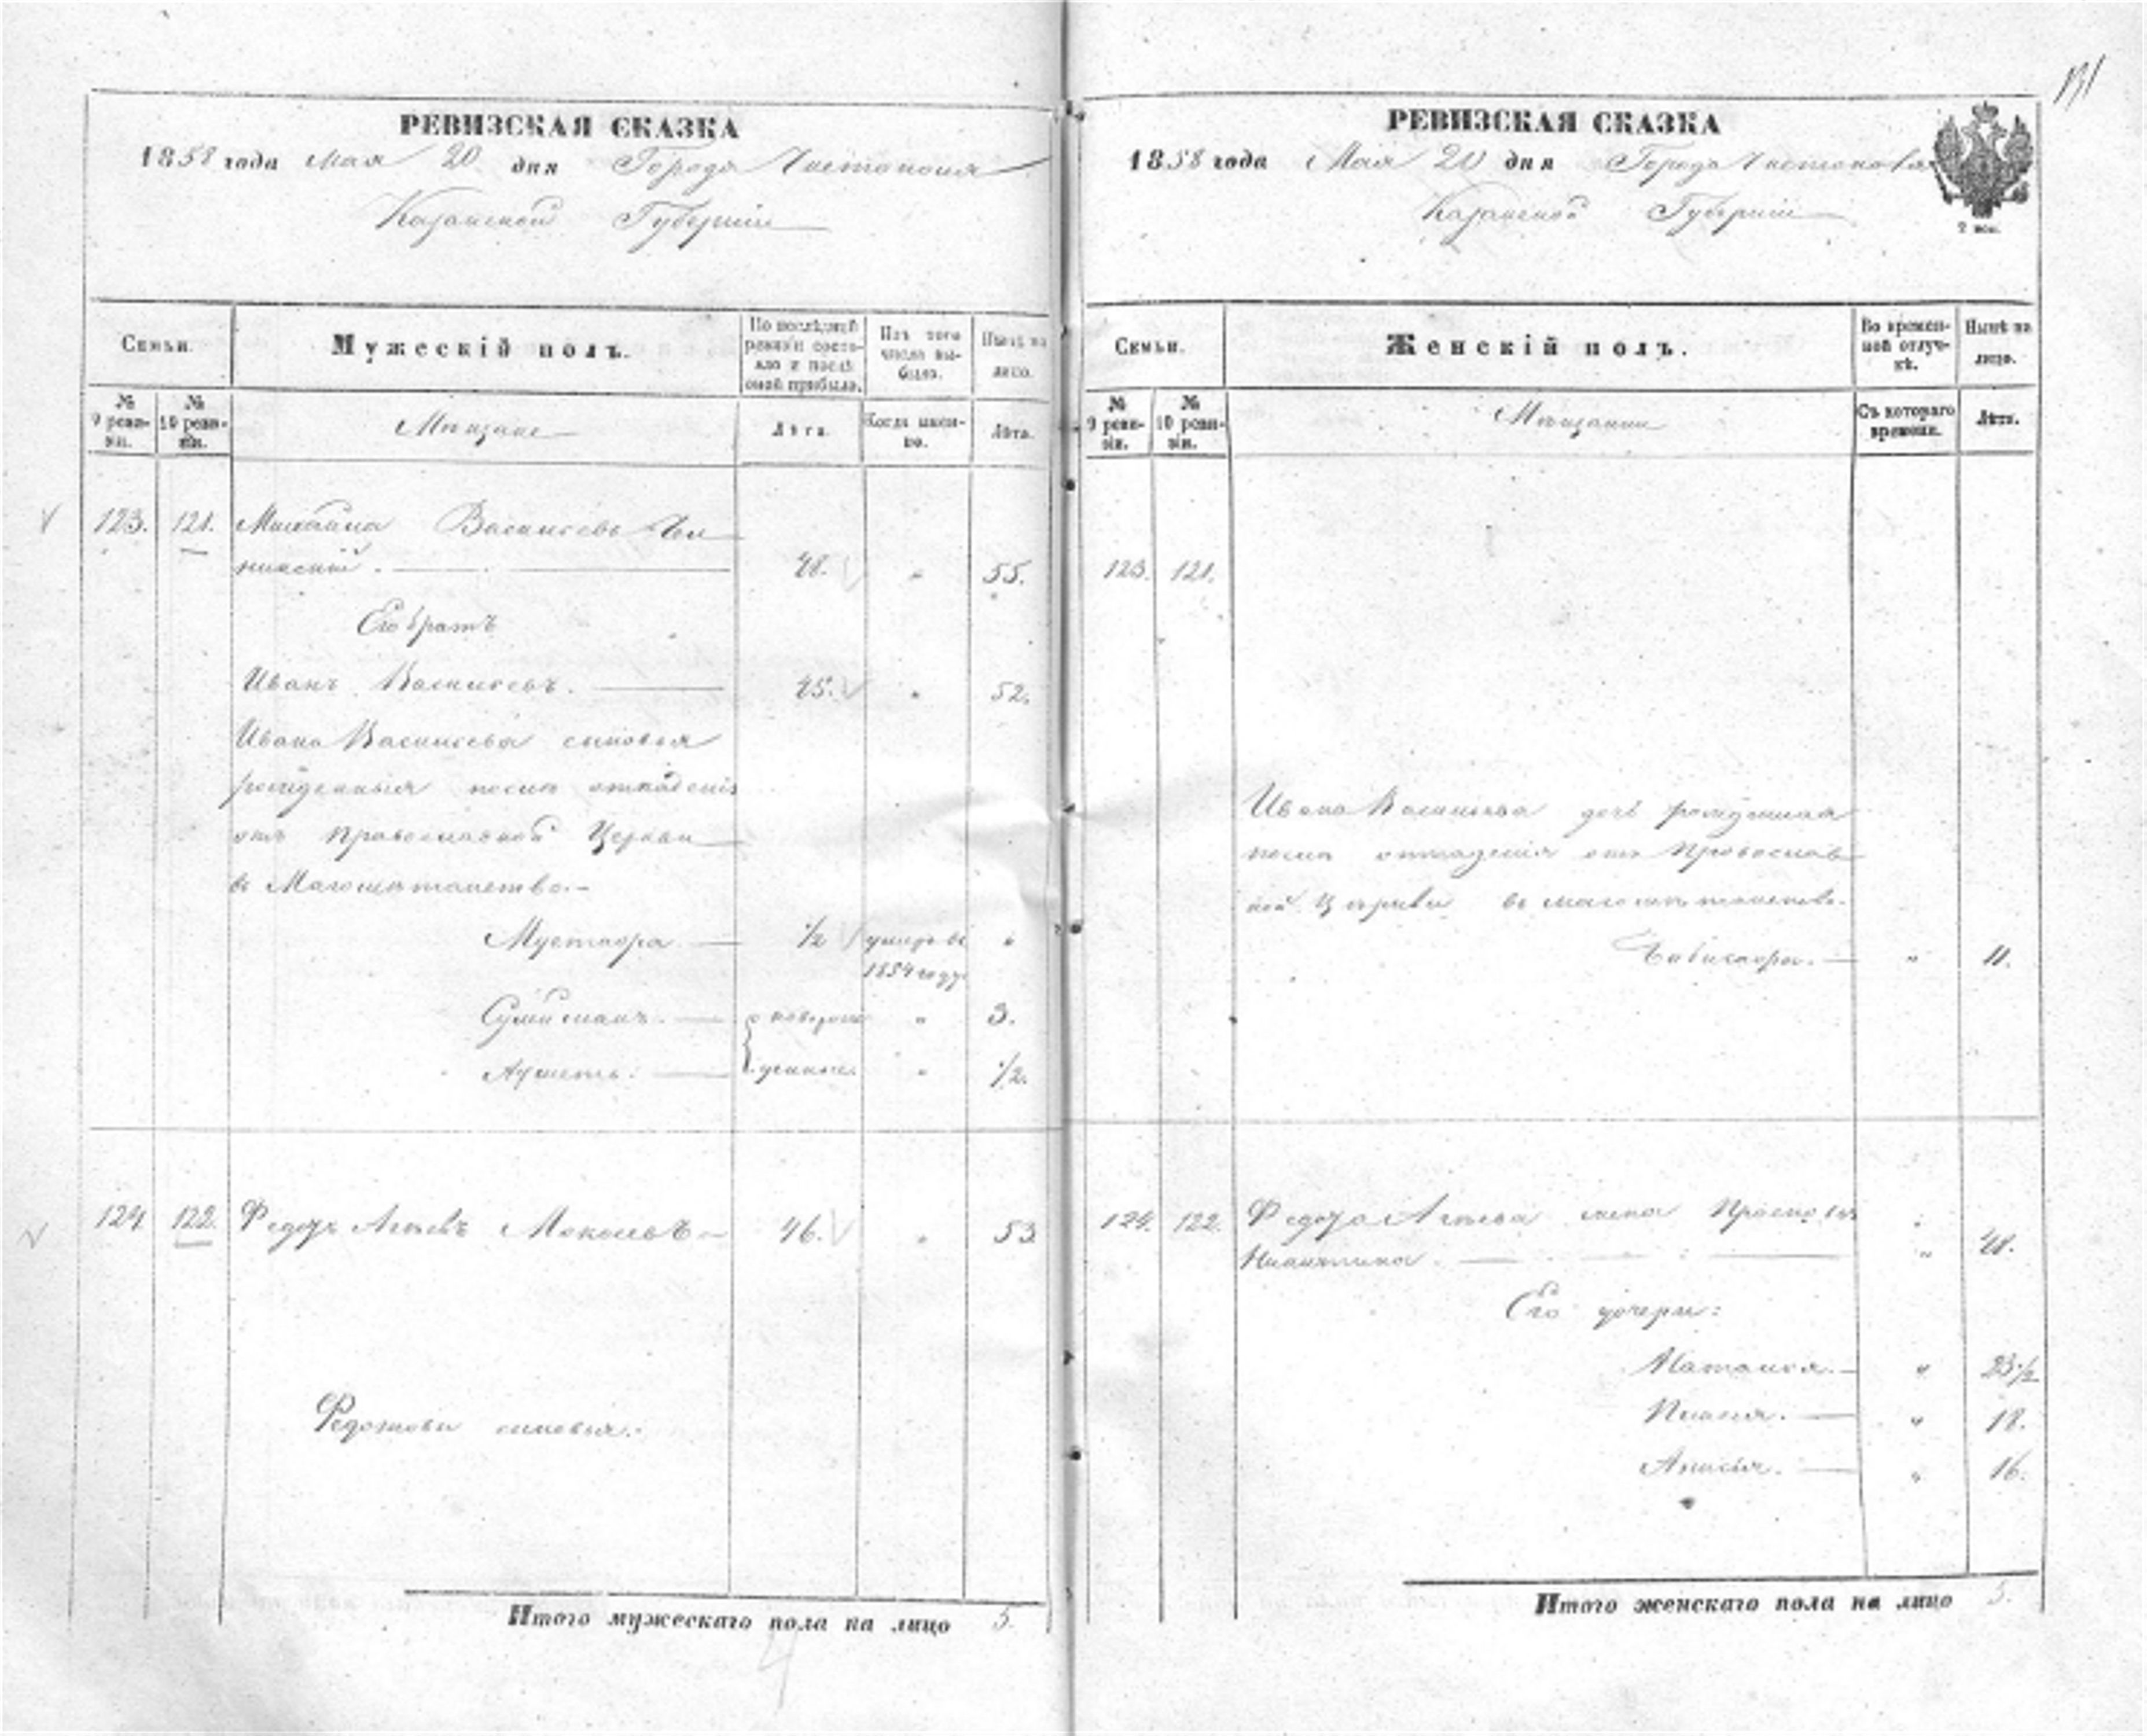 РЕВИЗСКАЯ СКАЗКА
1858 года Мая 20 дня Города Чистополя
Казанской Губернии
Семьи.
Мужескій полъ.
По послѣдней ревизіи состояло и послѣ оной прибыло.
Изъ того числа выбыло.
Нынѣ на лицо.
№ 9 ревизіи.
№ 10 ревизіи.
Мещане
Лѣта.
Когда именно.
Лѣта.
123. 121. Михайла Васильевъ
48. " 55.
Его братъ
Иванъ Васильевъ. 45. " 52.
Ивана Васильева сыновья
рожденныя после отпаденія
отъ Православной Церкви
въ Магометанство.-
Мустафа 1/2 умеръ въ "
1854 году
Сулиманъ. о новорож " 3.
Ахметъ. денные. " 1/2.
124. 122. Федотъ 46. " 53.
Федотовы сыновья:
Итого мужескаго пола на лицо 5.
131
РЕВИЗСКАЯ СКАЗКА
1858 года Мая 20 дня Города Чистополя
Казанской Губернии
2 коп.
Семьи.
Женскій полъ.
Во временной отлучкѣ.
Нынѣ на лицо.
№ 9 ревизіи.
№ 10 ревизіи.
Мещанки
Съ котораго времени.
Лѣта.
123. 121.
Ивана Васильева дочь рожденная
после отпаденія отъ Православ
ной Церкви въ магометанство.
" 11.
124. 122. жена "
" 48.
Его дочери:
Наталья. " 23 1/2
" 18.
Анисья. " 16.
Итого женскаго пола на лицо 5.